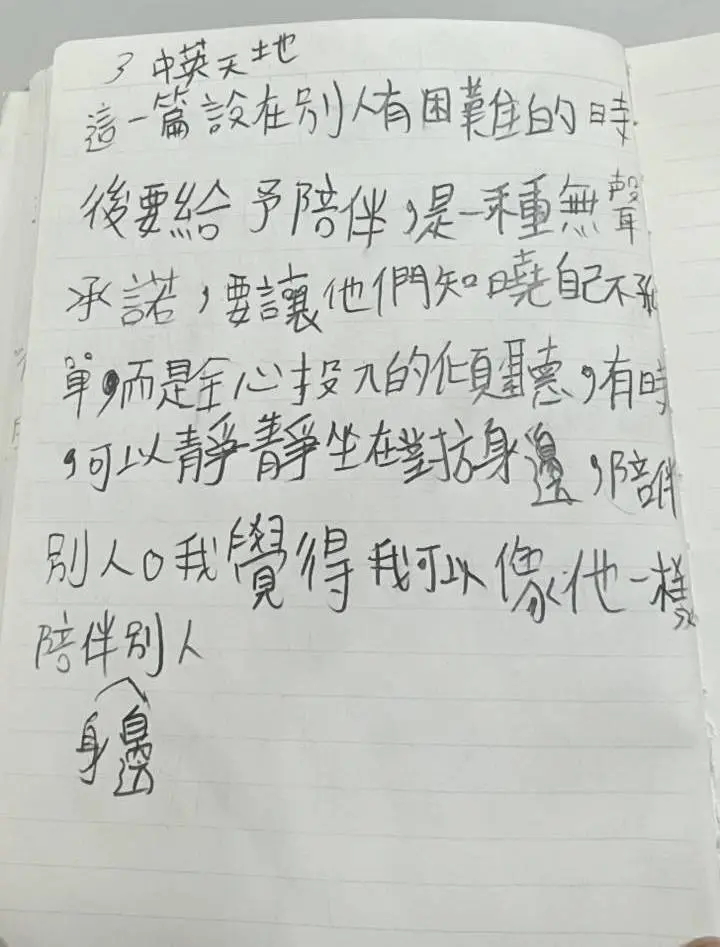 3 中英天地
這一篇設在別人有困難的時
後要給予陪伴,是一種無聲
承諾,要讓他們知曉自己不孤
單,而是全心投入的傾聽,有時
,可以靜靜坐在對方身邊,陪伴
別人。我覺得我可以像他一樣
陪伴別人
身邊